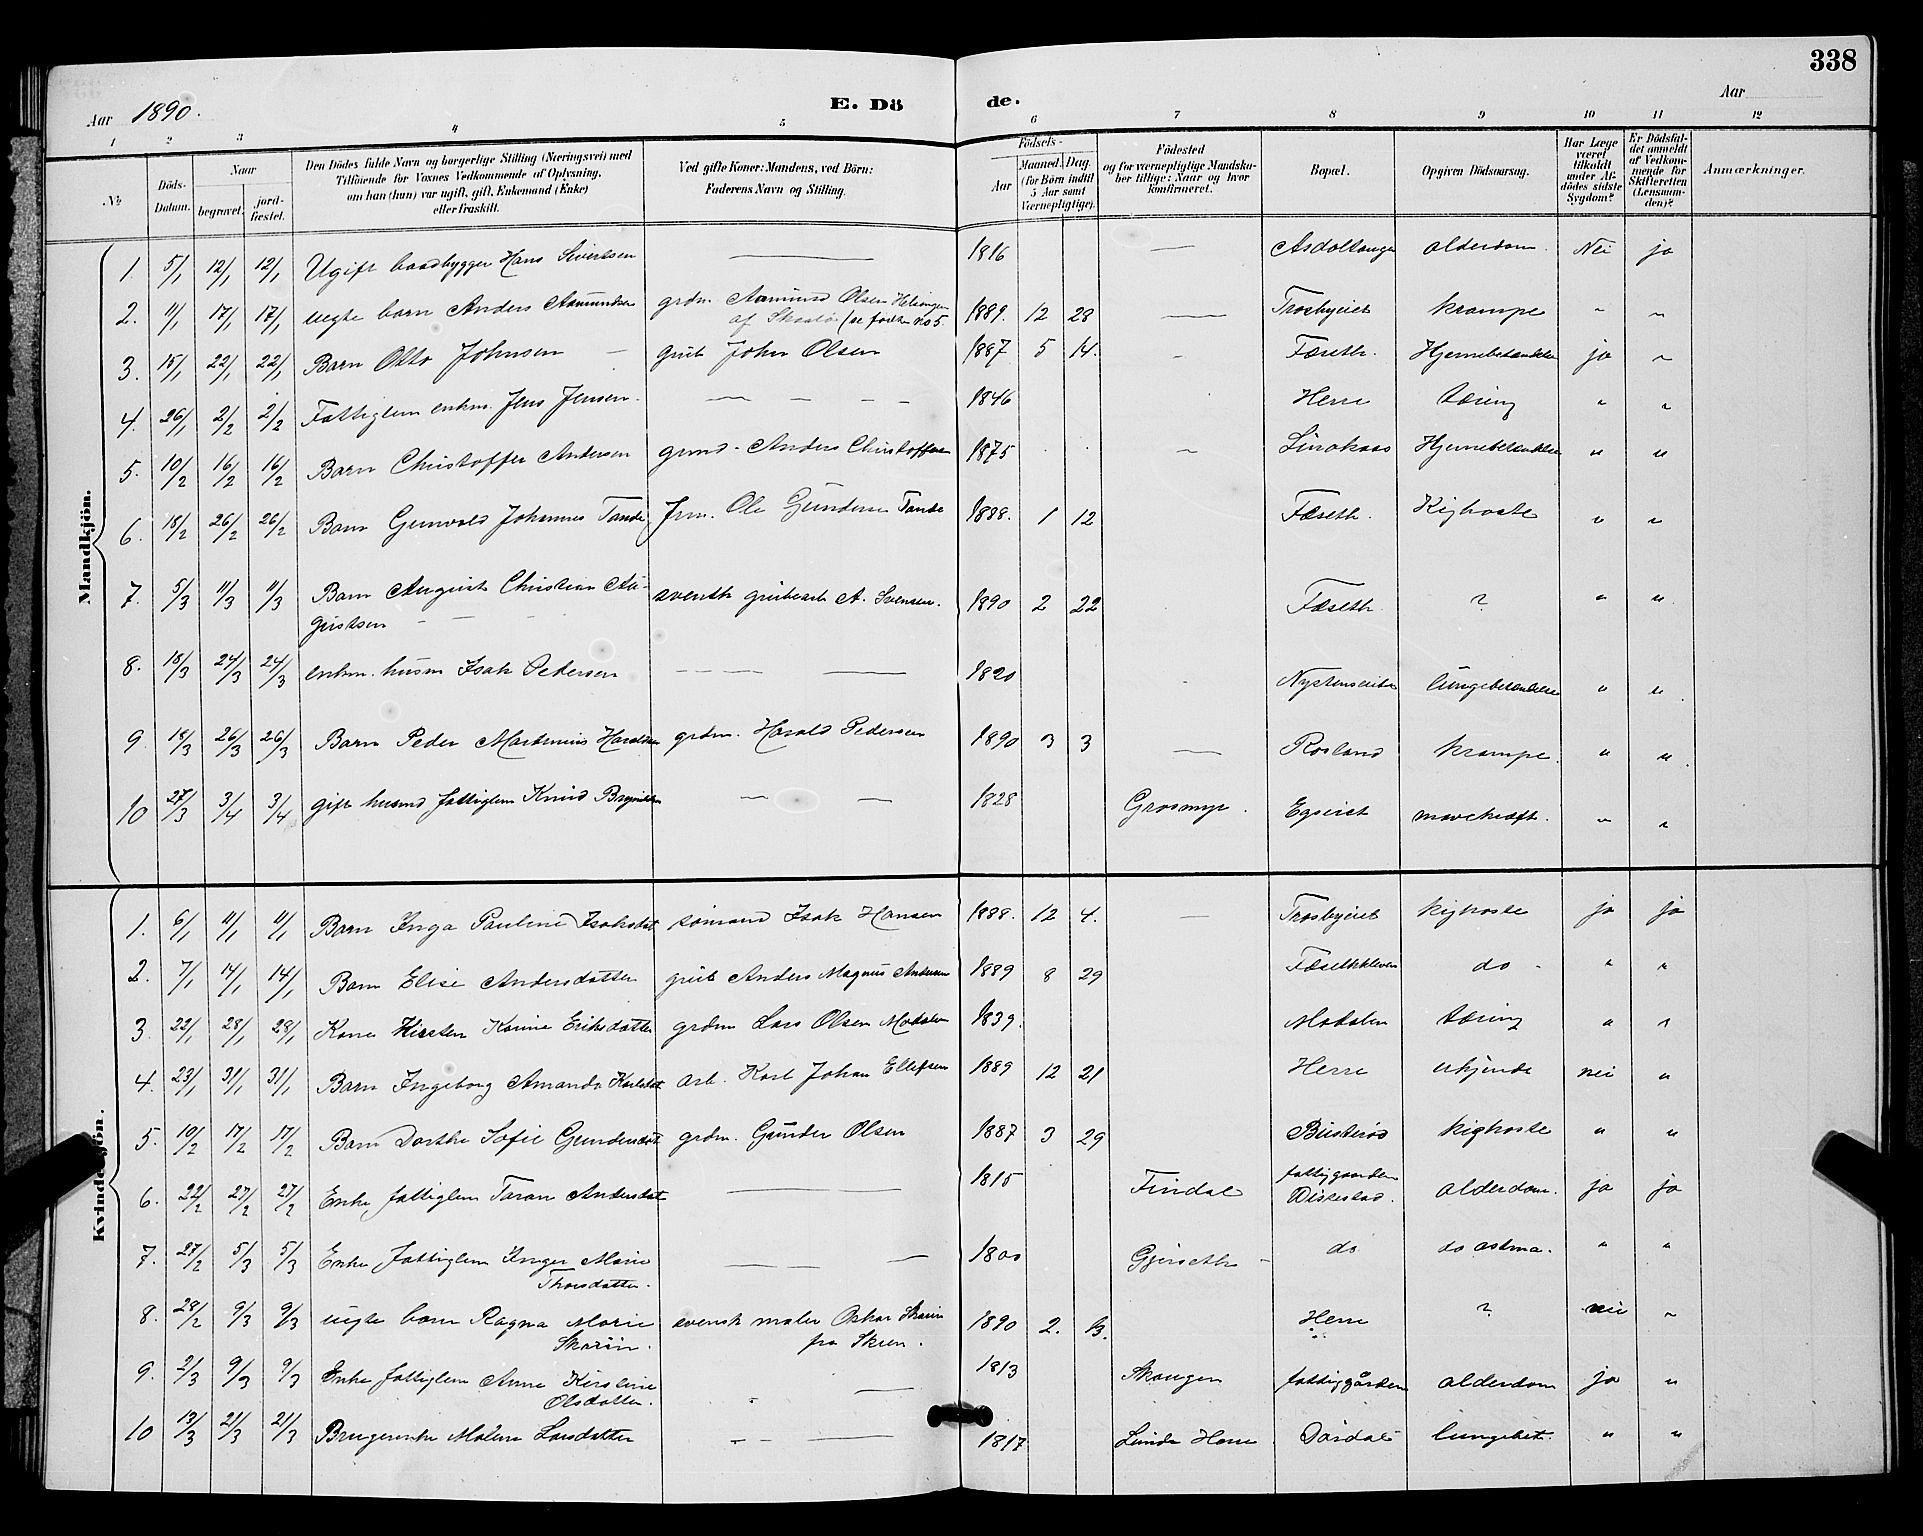 338
Aar 1890. E. Dö de. Aar
1 2 3 4 5 6 7 8 9 10 11 12
№ Döds-Datum. Naar begravet. jord-fæstet. Den Dödes fulde Navn og borgerlige Stilling (Næringsvei) med Tilföiende for Voxnes Vedkommende af Oplysning, om han (hun) var ugift, gift, Enkemand (Enke) eller fraskilt. Ved gifte Koner: Mandens, ved Börn: Faderens Navn og Stilling. Födsels- Aar Maaned. Dag. (for Börn indtil 5 Aar samt Værnepligtige). Födested og for værnepligtige Mandskaber tillige: Naar og hvor konfirmeret. Bopæl. Opgiven Dödsaarsag. Har Læge været tilkaldt under Afdödes sidste Sygdom? Er Dödsfaldet anmeldt af Vedkommende for Skifteretten (Lensmanden)? Anmærkninger.
Mandkjön.
1 5/1 12/1 12/1 Ugift baadbygger Hans Sivertsen — 1816 — Asdoltangen alderdom. Nei ja
2. 11/1 17/1 17/1 uegte barn Anders Aamundsen grdm. Aamund Olsen Helgingen 1889. 12 28 — Trosbyeiet krampe " "
af Skaatø (se fødte no 5.
3. 15/1 22/1 22/1 Barn Otto Johnsen — grub John Olsen 1887 5 14. - Fæseth. Hjernebetændelse ja "
4. 26/1 2/2 2/2 Fattiglem enkm. Jens Jensen. — — — — 1846 Herre tæring " "
5. 10/2 16/2 16/2 Barn Christoffer Andersen grmd. Anders Christoffersen 1875 . . ~ Hjernebetændelse " "
6. 18/2 26/2 26/2 Barn Gunvald Johannes Tande, Jrm. Ole Gundersen Tande 1888. 1 12 Fæseth. Kighoste " "
7. 5/3 11/3 11/3 Barn August Christian Au- svensk grubearb A. Svensen. 1890 2 22 Fæseth. ? " "
gustsen — —
8. 18/3 24/3 24/3 enkm. husm Isak Pedersen — — — 1820 - lungebetændelse " "
9. 18/3 26/3 26/3 Barn Peder Martinius Haraldsen grdm. Harald Pedersen 1890 3 3 — Rosland krampe. " "
10 27/3 3/4 3/4 gift husmd fattiglem Knud — — 1828 Grasmyr. mavekræft. " "
Kvindekjön.
1. 6/1 11/1 11/1 Barn Inga Pauline Isaksdat sömand Isak Hansen 1888. 12 4. — Trosbyeiet kighoste ja ja
2. 7/1 14/1 14/1 Barn Elise Andersdatter grub Anders Magnus Andersen 1889 8 29 Fæsethkleven do - " "
3 22/1 28/1 28/1 Kone Kirsten Karine Eriksdatter grdm Lars Olsen Modalen 1839. Modalen tæring " "
4. 23/1 31/1 31/1 Barn Ingeborg Amanda Karlsdat arb. Karl Johan Ellefsen 1889 12 21 Herre ukjendt nei "
5. 10/2 17/2 17/2 Barn Dorthe Sofie Gundersdat grdm. Gunder Olsen 1887 3 29 Busterød kighoste " "
6. 22/2 27/2 27/2 Enke fattiglem Taran Andersdat — 1815 Findal fattiggaarden alderdom. ja ja
7. 27/2 5/3 5/3 Enke fattiglem Inger Marie — — — 1800 Gjerseth - do do astma. " "
Thorsdatter.
8. 28/2 9/3 9/3 uegte barn Ragna Marie svensk maler Oskar Skarin 1890 2. 13. Herre ? nei "
Skarin. fra Skien.
9. 2/3 9/3 9/3 Enke fattiglem Anne Kirstine — 1813 Skougen fattiggården alderdom ja "
Olsdatter.
10 13/3 21/3 21/3 Brugerenke Malene Larsdatter — — — 1817 Lunde Herre Dørdal lungebet. " "